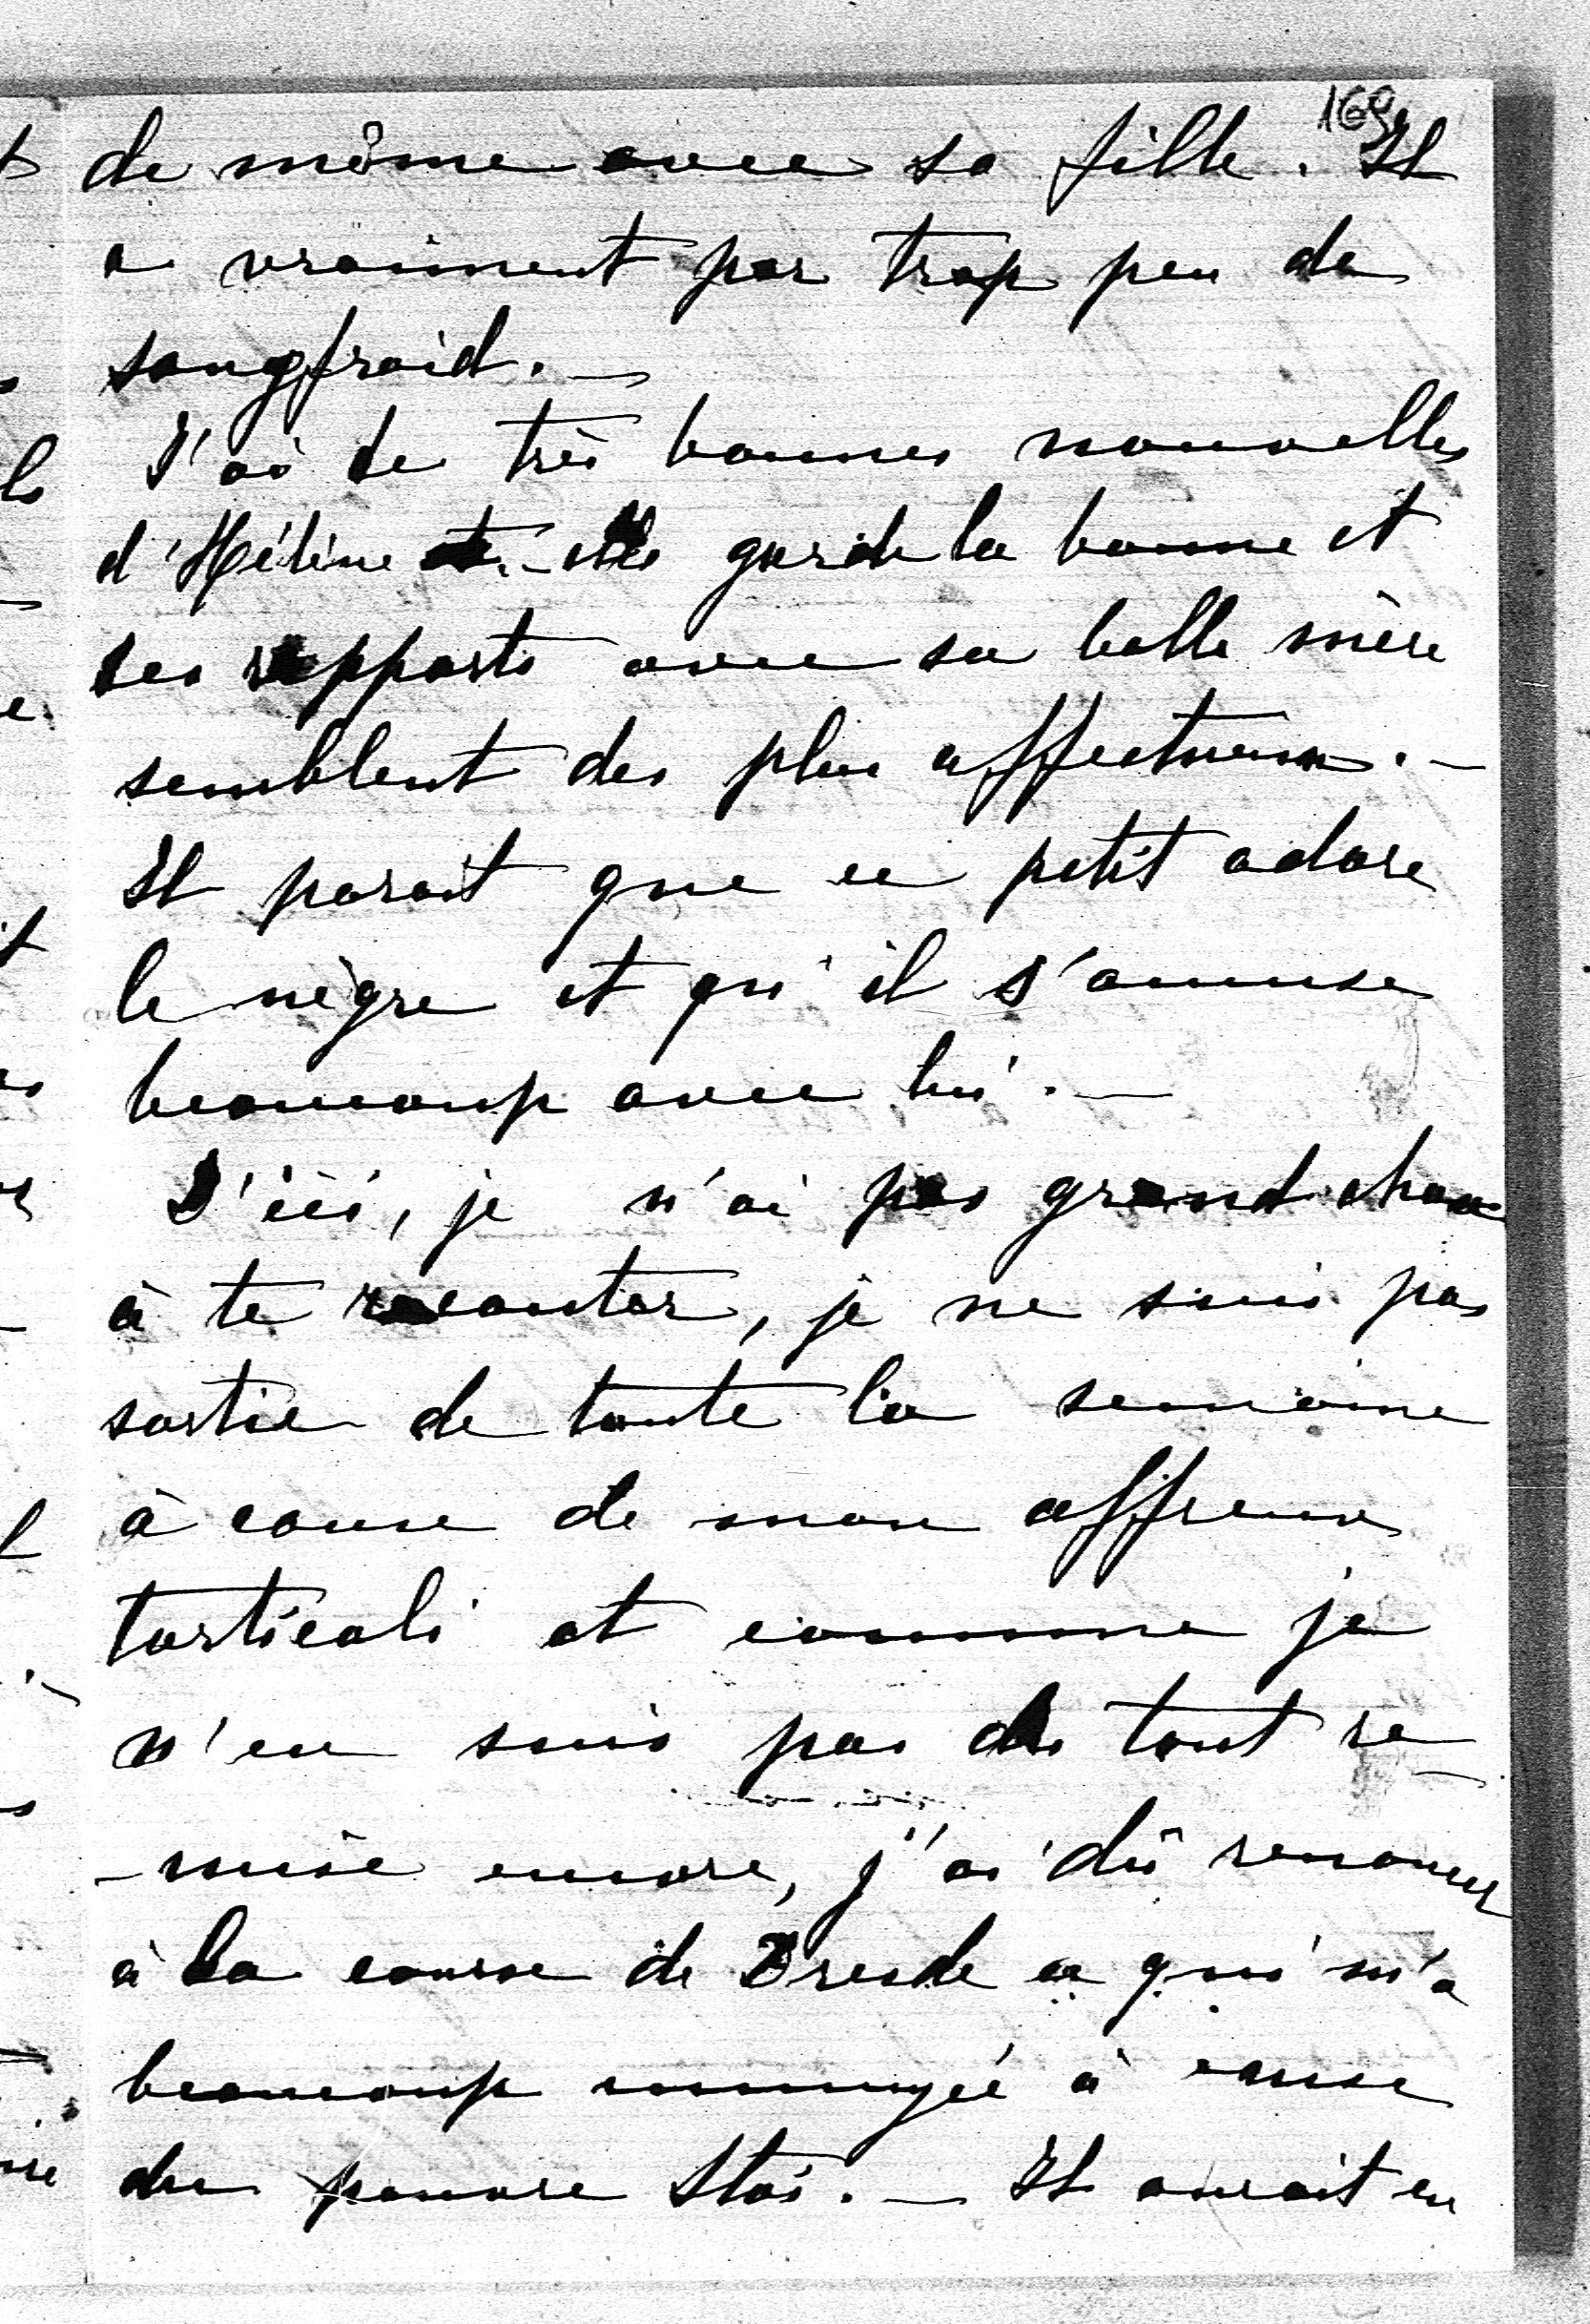 169
de même avec sa fille. Il
a vraiment par trop peu de
sangfroid. —
J'ai de très bonnes nouvelles
d'Hélène elle garde la bonne et
ses rapports avec sa belle mère
semblent des plus affectueux. —
Il parait que ce petit adore
le nègre et qu'il s'amuse
beaucoup avec lui. —
D'ici, je n'ai pas grand chose
à te raconter, je ne suis pas
sortie de toute la semaine
à cause de mon affreux
torticoli et comme je
n'en suis pas du tout re-
-mise encore, j'ai dû renoncer
à la course de Dresde ce qui m'a
beaucoup ennuyée à cause
du pauvre Stoï. — Il aurait eu